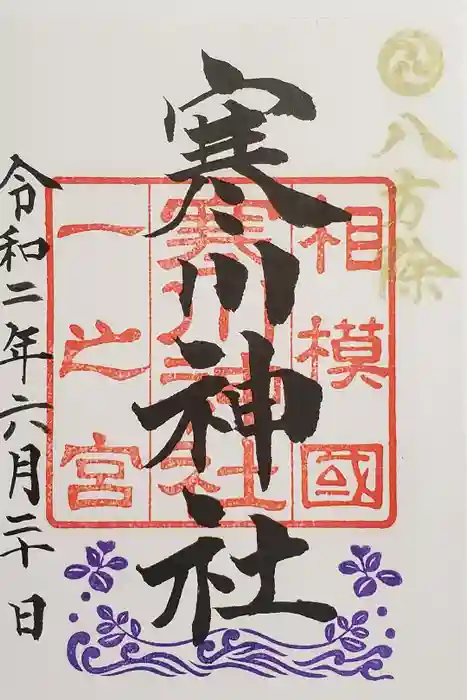 八方除
相模國
寒川神社
一之宮
寒川神社
令和二年六月三十日